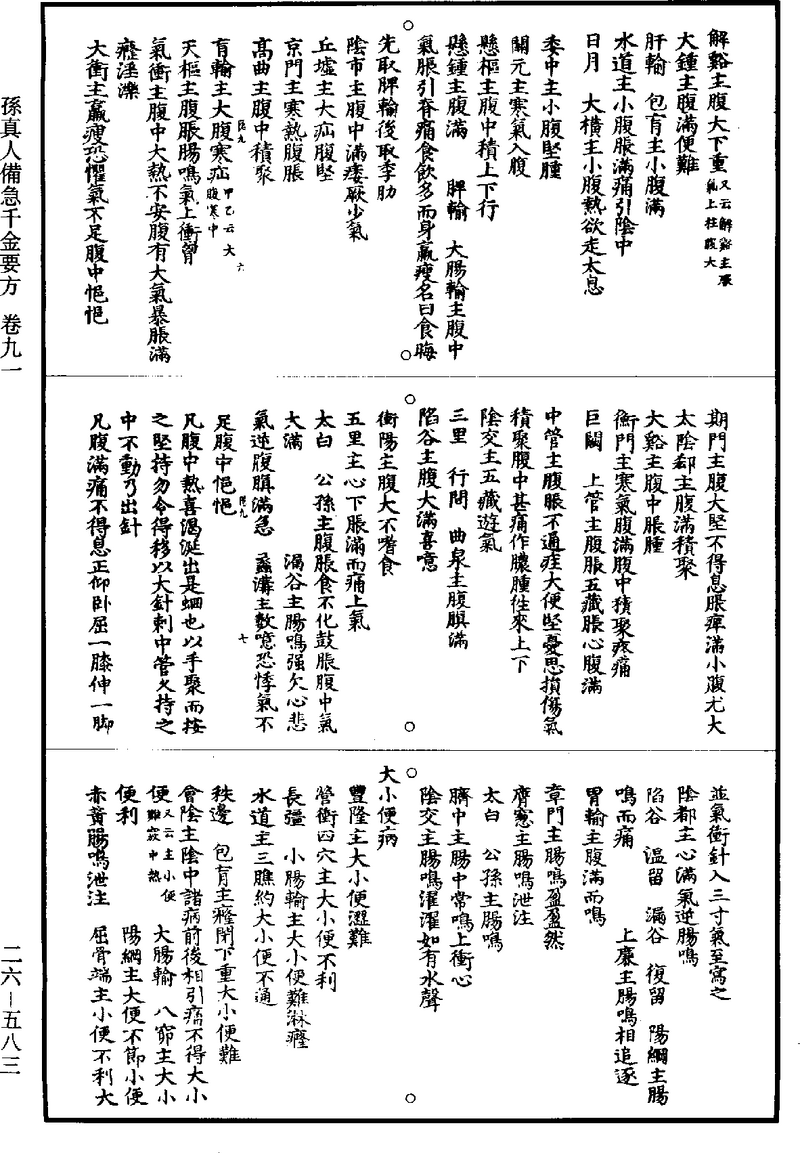 解谿主腹大下重又云解谿主脹氣上柱腹大
大鍾主腹滿便難
肝輸　包肓主小腹滿
水道主小腹脹滿痛引陰中
日月　大橫主小腹熱欲走太息
委中主小腹堅腫
關元主寒氣入腹
懸樞主腹中積上下行
懸鍾主腹滿　脾輸　大腸輸主腹中
氣脹引脊痛食飲多而身羸瘦名曰食晦
先取脾輸後取季肋
陰市主腹中滿痿厥少氣
丘墟主大疝腹堅
京門主寒熱腹脹
高曲主腹中積聚
肓輸主大腹寒疝甲乙云大腹寒中
天樞主腹脹腸鳴氣上衝胷
氣衝主腹中大熱不安腹有大氣暴脹滿
癃淫濼
大衝主羸瘦恐懼氣不足腹中悒悒
期門主腹大堅不得息脹痺滿小腹尤大
太陰郄主腹滿積聚
大谿主腹中脹腫
衝門主寒氣腹滿腹中積聚疼痛
巨闕　上管主腹脹五藏脹心腹滿
中管主腹脹不通疰大便堅憂思損傷氣
積聚腹中甚痛作膿腫往來上下
陰交主五藏遊氣
三里　行間　曲泉主腹䐜滿
陷谷主腹大滿喜噫
衝陽主腹大不嗜食
五里主心下脹滿而痛上氣
太白　公孫主腹脹食不化鼓脹腹中氣
大滿　漏谷主腸鳴强欠心悲
氣逆腹䐜滿急　蠡溝主數噫恐悸氣不
足腹中悒悒
凡腹中熱喜渴涎出是蛔也以手聚而按
之堅持勿令得移以大針刺中管久持之
中不動乃出針
凡腹滿痛不得息正仰卧屈一膝伸一脚
並氣衝針入三寸氣至寫之
陰都主心滿氣逆腸鳴
陷谷　温留　漏谷　復留　陽綱主腸
鳴而痛　上廉主腸鳴相追逐
胃輸主腹滿而鳴
章門主腸鳴盈盈然
膏肓主腸鳴泄注
太白　公孫主腸鳴
臍中主腸中常鳴上衝心
陰交主腸鳴濯濯如有水聲
大小便病
豐隆主大小便澀難
營衝四穴主大小便不利
長彊　小腸輸主大小便難淋癃
水道主三膲約大小便不通
秩邊　包肓主癃閉下重大小便難
會陰主陰中諸病前後相引痛不得大小
便又云主小便難竅中熱　大腸輸　八窌主大小
便利　陽綱主大便不節小便
赤黃腸鳴泄注　屈骨端主小便不利大
孫真人備急千金要方　卷九一
二六—五八三